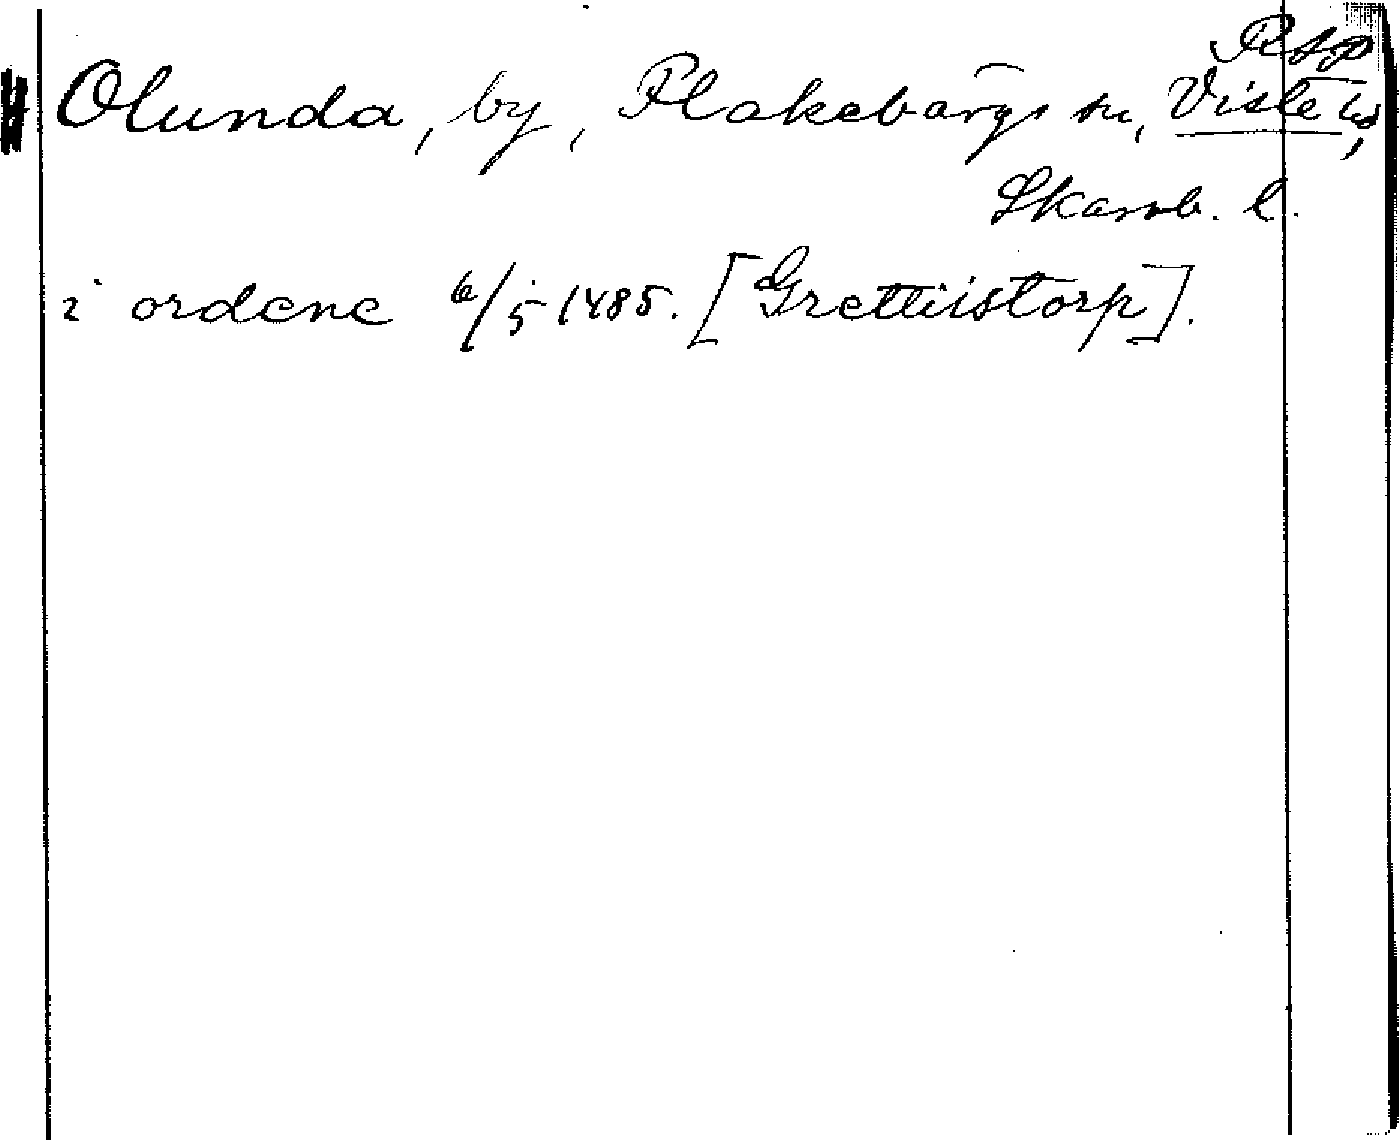 RAP
Olunda, by, Flakebärgs sn, Viste hd,
Skarab. l.
i ordene 6/5 1485. [Grettiistorp].